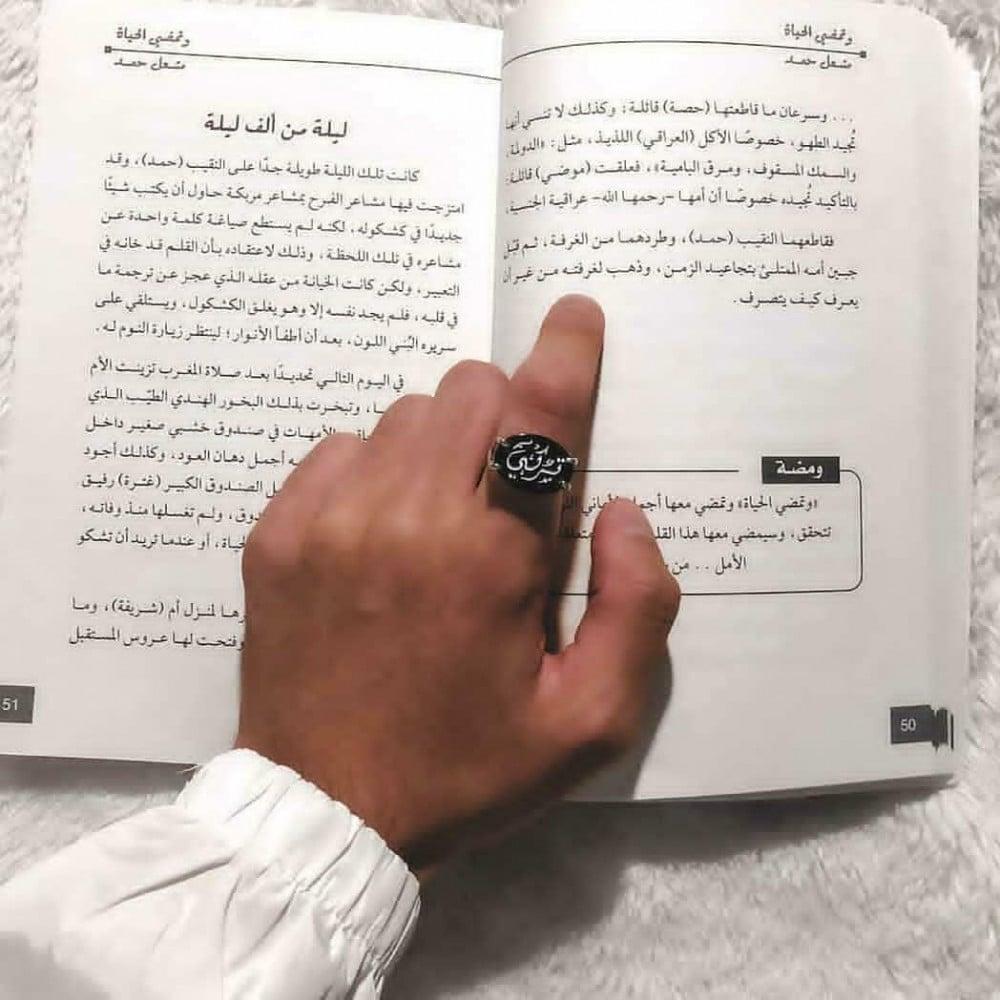 وتمضي الحياة
مشعل حمد
... وسرعان ما قاطعتها (حصة) قائلة: وكذلك لا تنسي أنها
تُجيد الطهو، خصوصًا الأكل (العراقي) اللذيذ، مثل: «الدولة،
والسمك المسقوف، ومرق البامية»، فعلقت (موضي) قائلة:
بالتأكيد تُجيده خصوصًا أن أمها -رحمها الله- عراقية الجنسية.
فقاطعهما النقيب (حمد)، وطردهما من الغرفة، ثم قبل
جبين أمه الممتلئ بتجاعيد الزمن، وذهب لغرفته من غير أن
يعرف كيف يتصرف.
ومضة
«وتمضي الحياة» وتمضي معها أجمل الأماني
تتحقق، وسيمضي معها هذا
الأمل .. من
50
وتمضي الحياة
مشعل حمد
ليلة من ألف ليلة
كانت تلك الليلة طويلة جدًا على النقيب (حمد)، وقد
امتزجت فيها مشاعر الفرح بمشاعر مربكة حاول أن يكتب شيئًا
جديدًا في كشكوله، لكنه لم يستطع صياغة كلمة واحدة عن
مشاعره في تلك اللحظة، وذلك لاعتقاده بأن القلم قد خانه في
التعبير، ولكن كانت الخيانة من عقله الذي عجز عن ترجمة ما
في قلبه، فلم يجد نفسه إلا وهو يغلق الكشكول، ويستلقي على
سريره البُني اللون، بعد أن أطفأ الأنوار؛ لينتظر زيارة النوم له.
في اليوم التالي تحديدًا بعد صلاة المغرب تزينت الأم
وتبخرت بذلك البخور الهندي الطيّب الذي
الأمهات في صندوق خشبي صغير داخل
أجمل دهان العود، وكذلك أجود
الصندوق الكبير (غترة) رفيق
ولم تغسلها منذ وفاته،
أو عندما تريد أن تشكو
لمنزل أم (شريفة)، وما
وفتحت لها عروس المستقبل
51